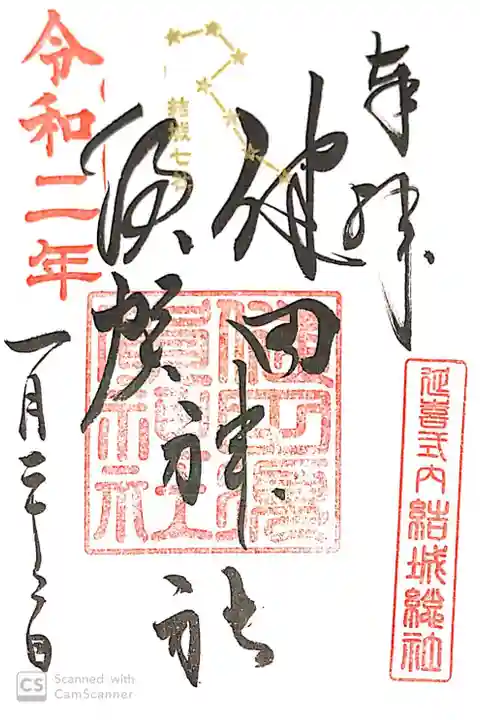 奉拝
延喜式内結城総社
健田
須賀
神社
結城七
令和二年
一月
日
Scanned with
CamScanner
CS